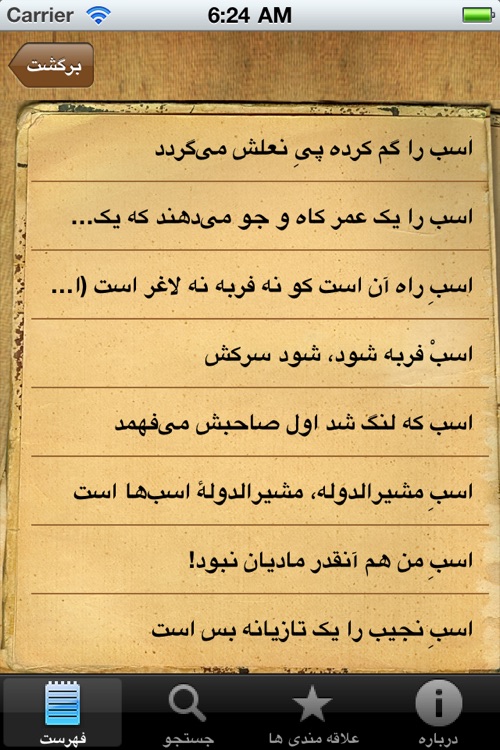 Carrier 6:24 AM
برگشت
اسب را گم کرده پیِ نعلش می‌گردد
اسب را یک عمر کاه و جو می‌دهند که یک...
اسبِ راه آن است کو نه فربه نه لاغر است (ا...
اسبْ فربه شود، شود سرکش
اسب که لنگ شد اول صاحبش می‌فهمد
اسبِ مشیرالدوله، مشیرالدولهٔ اسب‌ها است
اسبِ من هم آنقدر مادیان نبود!
اسبِ نجیب را یک تازیانه بس است
درباره علاقه مندی ها جستجو فهرست